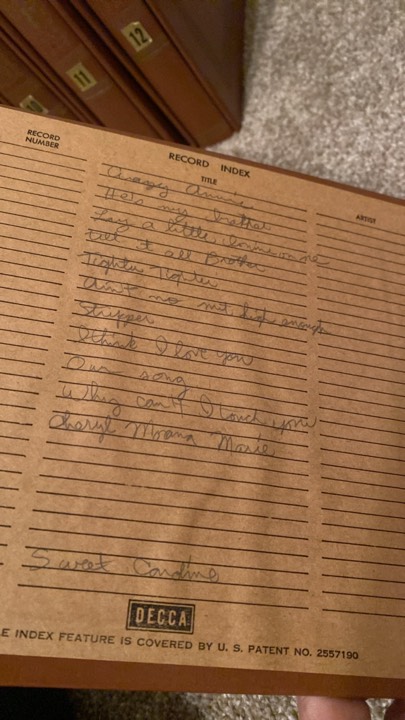 12
11
10
RECORD NUMBER
RECORD INDEX
TITLE
ARTIST
Crazy Annie
He's my brother
Lay a little lovin on me
Tell it all Brother
Tighter Tighter
ain't no mt high enough
Stripper
I think I love you
Our song
Why can't I touch you
Cheryl Moana Marie
Sweet Caroline
DECCA
E INDEX FEATURE IS COVERED BY U. S. PATENT NO. 2557190